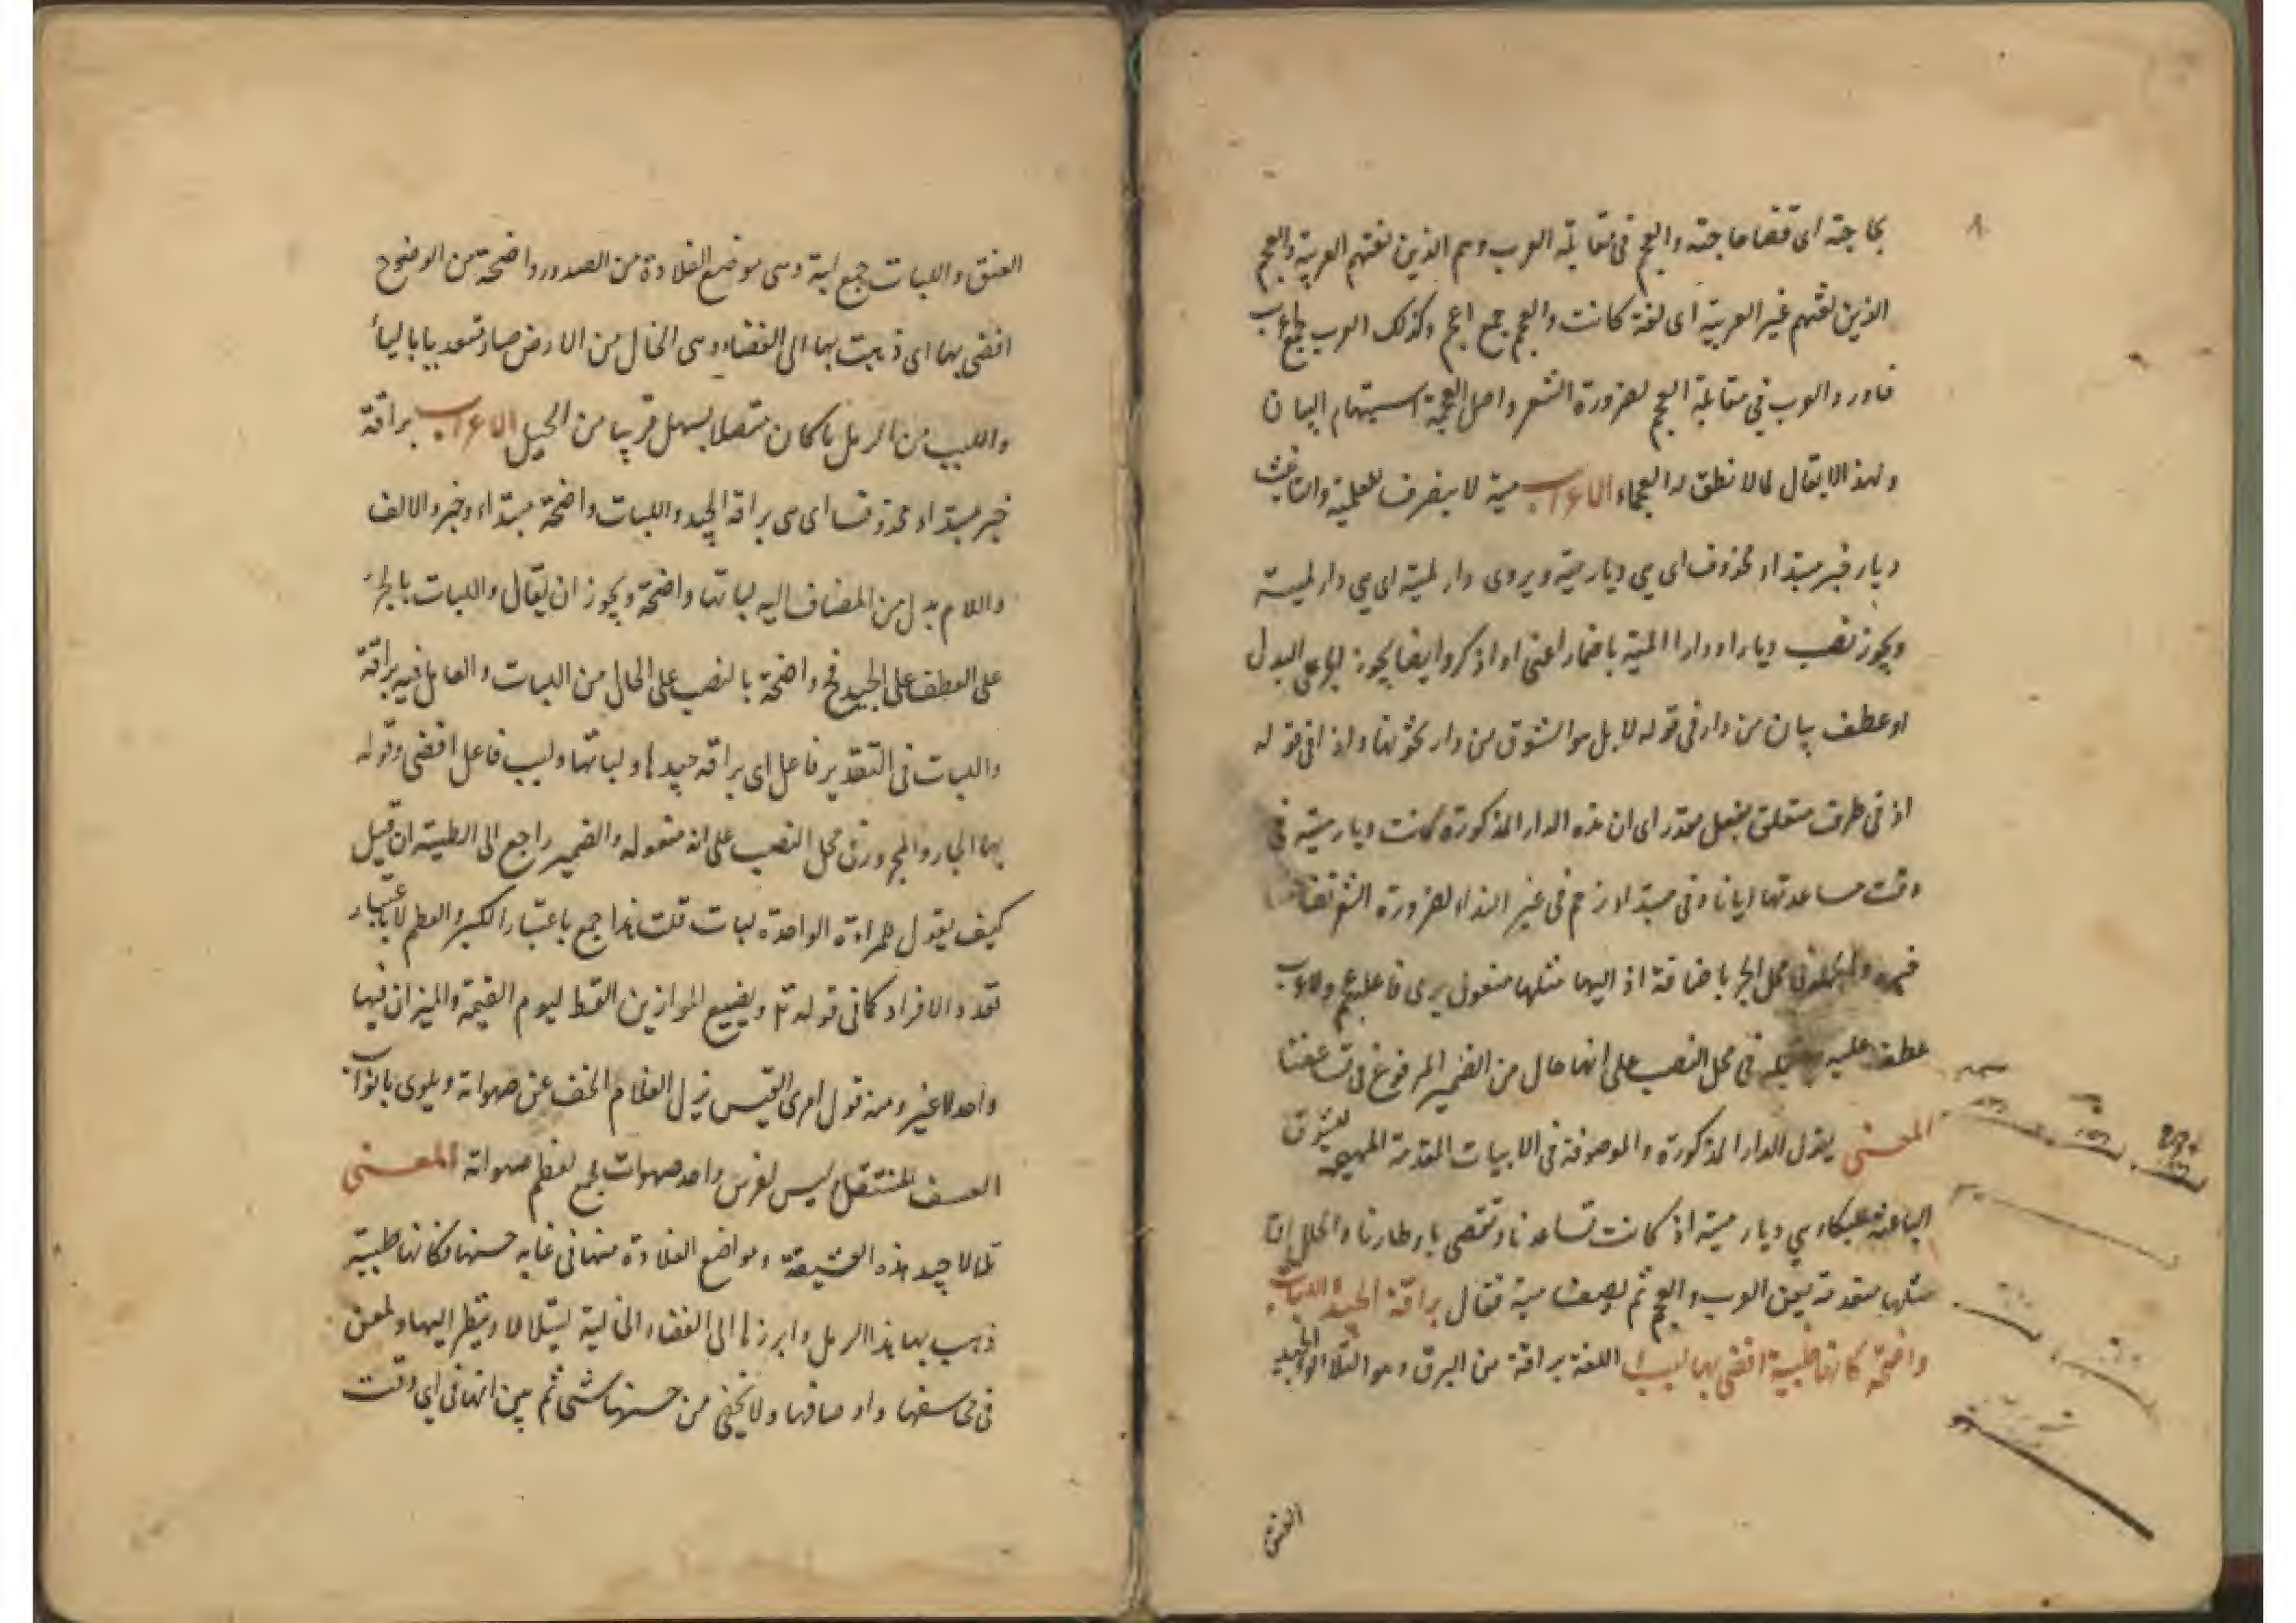 ٨
بحاجته اى قضا حاجته والعجم فى مقابلة العرب وهم الذين لغتهم العربية والعجم
الذين لغتهم غير العربية اى لغة كانت والعجم جمع اعجم وكذلك العرب جمع اعرب
فاورد العرب فى مقابلة العجم لضرورة الشعر واصل العجمة استبهام البيان
ولهذا لا يقال لما لا نطق له العجماء الاعراب مية لا ينصرف للعلمية والتانيث
ديار خبر مبتداء محذوف اى هى ديار مية ويروى دار لمية اى هى دار لمية
ويجوز نصب ديار او دارا لمية باضمار اعنى او اذكر وايضا يجوز على البدل
او عطف بيان من دار فى قوله لا بل هو الشوق من دار تخونها واذ فى قوله
اذ فى ظرف متعلق بفعل مقدر اى ان هذه الدار المذكورة كانت ديار مية فى
وقت مساعدتها ايانا وفى مبتداء رخم فى غير النداء لضرورة الشعر تساعفنا
خبره والجملة فى محل الجر باضافة اذ اليها مثلها مفعول يرى فاعله عجم ولا عرب
عطف عليه فى محل النصب على انها حال من الضمير المرفوع فى تساعفنا
المعنى يقول الدار المذكورة والموصوفة فى الابيات المقدمة المهيجة للشوق
الباعثة للبكاء هى ديار مية اذ كانت تساعدنا وتقضى باوطارنا والحال انا
مثلها متقدمة بين العرب والعجم ثم يصف مية فقال براقة الجيد واللبات
واضحة كانها ظبية افضى بها لبب اللغة براقة من البرق وهو التلألؤ والجيد
العنق
العنق واللبات جمع لبة وهى موضع القلادة من الصدور واضحة من الوضوح
افضى بها اى ذهبت بها الى الفضاء وهى الخال من الارض صار متعديا بالباء
واللبب من الرمل ما كان متصلا بسهل قريبا من الحبل الاعراب براقة
خبر مبتداء محذوف اى هى براقة الجيد واللبات واضحة مبتداء وخبر والالف
واللام بدل من المضاف اليه لباتها واضحة ويجوز ان يقال واللبات بالجر
على العطف على الجيد فح واضحة بالنصب على الحال من اللبات والعامل فيه براقة
واللبات فى التقدير فاعل اى براقة جيدها ولباتها ولبب فاعل افضى وقوله
بها الجار والمجرور فى محل النصب على انه مفعوله والضمير راجع الى الظبية ان قيل
كيف يقول للمراءة الواحدة لبات قلت هذا جمع باعتبار الكبر والعظم لا باعتبار
تعدد الافراد كما فى قوله تع ونضع الموازين القسط ليوم القيمة والميزان فيها
واحد لا غير ومنه قول امرى القيس يزل الغلام الخف عن صهواته ويلوى باثواب
العنيف المثقل ليس لفرس واحد صهوات جمع لعظم صهواته المعنى
تلألأ جيد هذه العشيقة ومواضع القلادة منها فى غاية حسنها فكانها ظبية
ذهب بها هذا الرمل وابرزها الى الفضاء الخالية ليتلألأ وينظر اليها ولمعن
فى محاسنها واوصافها ولا يخفى من حسنها شئ ثم بين انها فى اى وقت